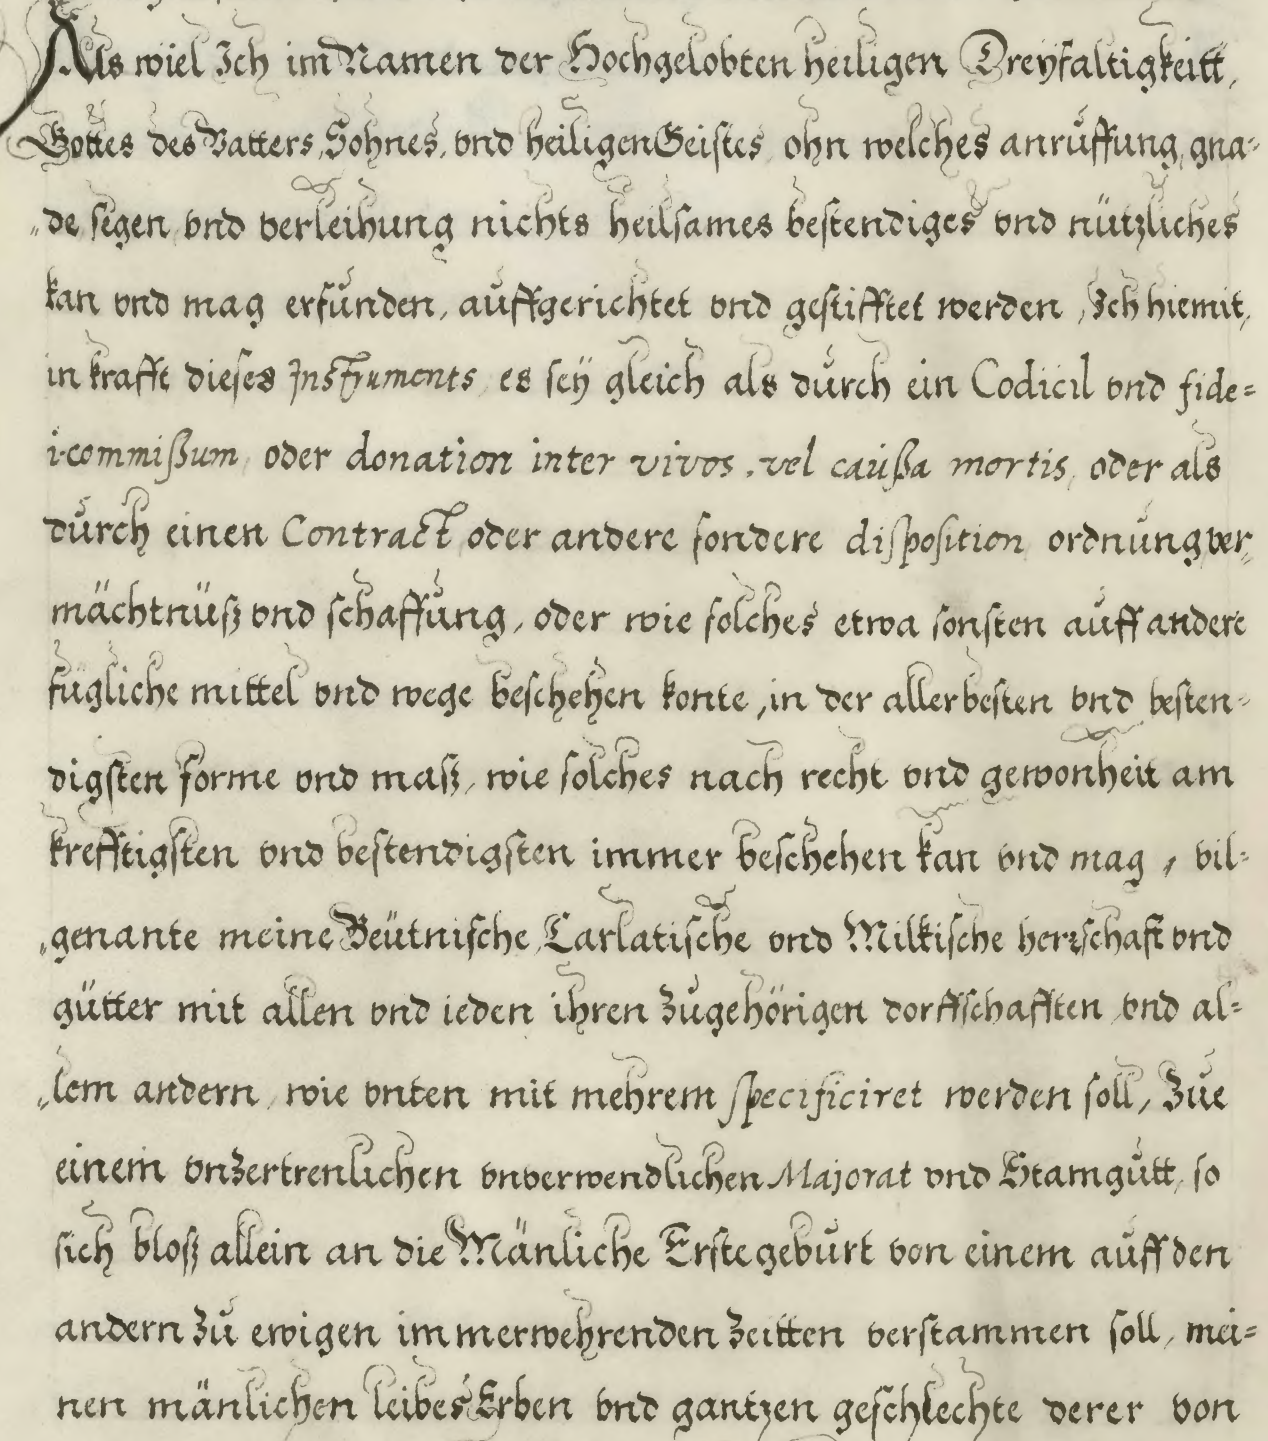 Als wiel Ich im Namen der Hochgelobten heiligen Dreyfaltigkeitt,
Gottes des Vatters, Sohnes, vnd heiligen Geistes ohn welches anrúffung, gna=
de segen vnd verleihung nichts heilsames bestendiges vnd nützliches
kan vnd mag erfunden, aúffgerichtet vnd gestifftet werden, Ich hiemit,
in krafft dieses Instruments es seÿ gleich als dúrch ein Codicil vnd fide=
icommißum, oder donation inter vivos, vel caúßa mortis, oder als
dúrch einen Contract oder andere sondere disposition ordnúng, ver,,
mächtnüß vnd schaffúng, oder wie solches etwa sonsten aúff andere
fügliche mittel vnd wege beschehen konte, in der allerbesten vnd besten=
digsten forme vnd maß, wie solches nach recht vnd gewonheit am
krefftigsten vnd bestendigsten immer beschehen kan vnd mag, vil=
genante meine Beütnische, Carlatische vnd Milkische herrschaft vnd
gütter mit allen vnd ieden ihren zúgehörigen dorffschafften vnd al=
lem andern, wie vnten mit mehrem specificiret werden soll, zúe
einem vnzertrenlichen vnverwendlichen Majorat vnd Stamgútt, so
sich bloß allein an die Mänliche Erste gebúrt von einem aúff den
andern zú ewigen immerwehrenden zeitten verstammen soll, mei=
nen mänlichen leibes Erben vnd gantzen geschlechte derer von